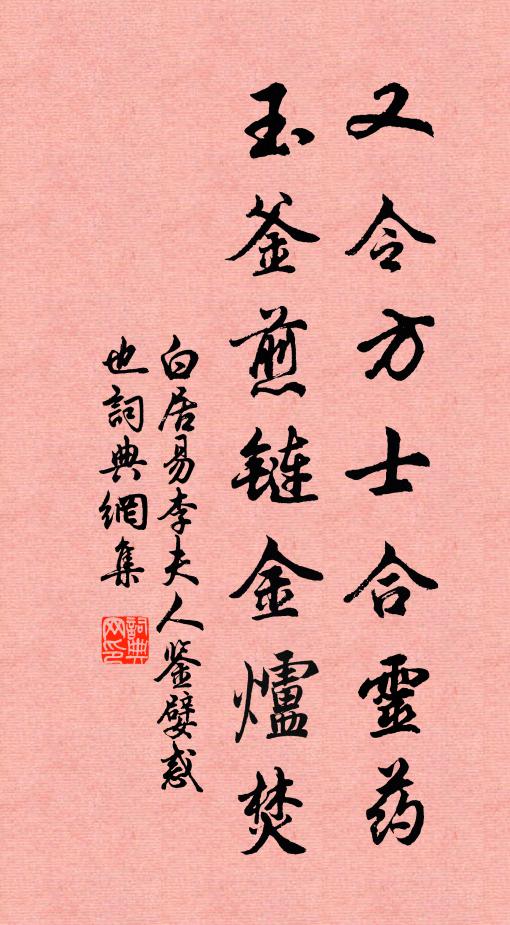 又令方士合靈药
玉釜煎鏈金爐焚
白居易李夫人鉴嬖惑
也詞典網集
詞典
网印